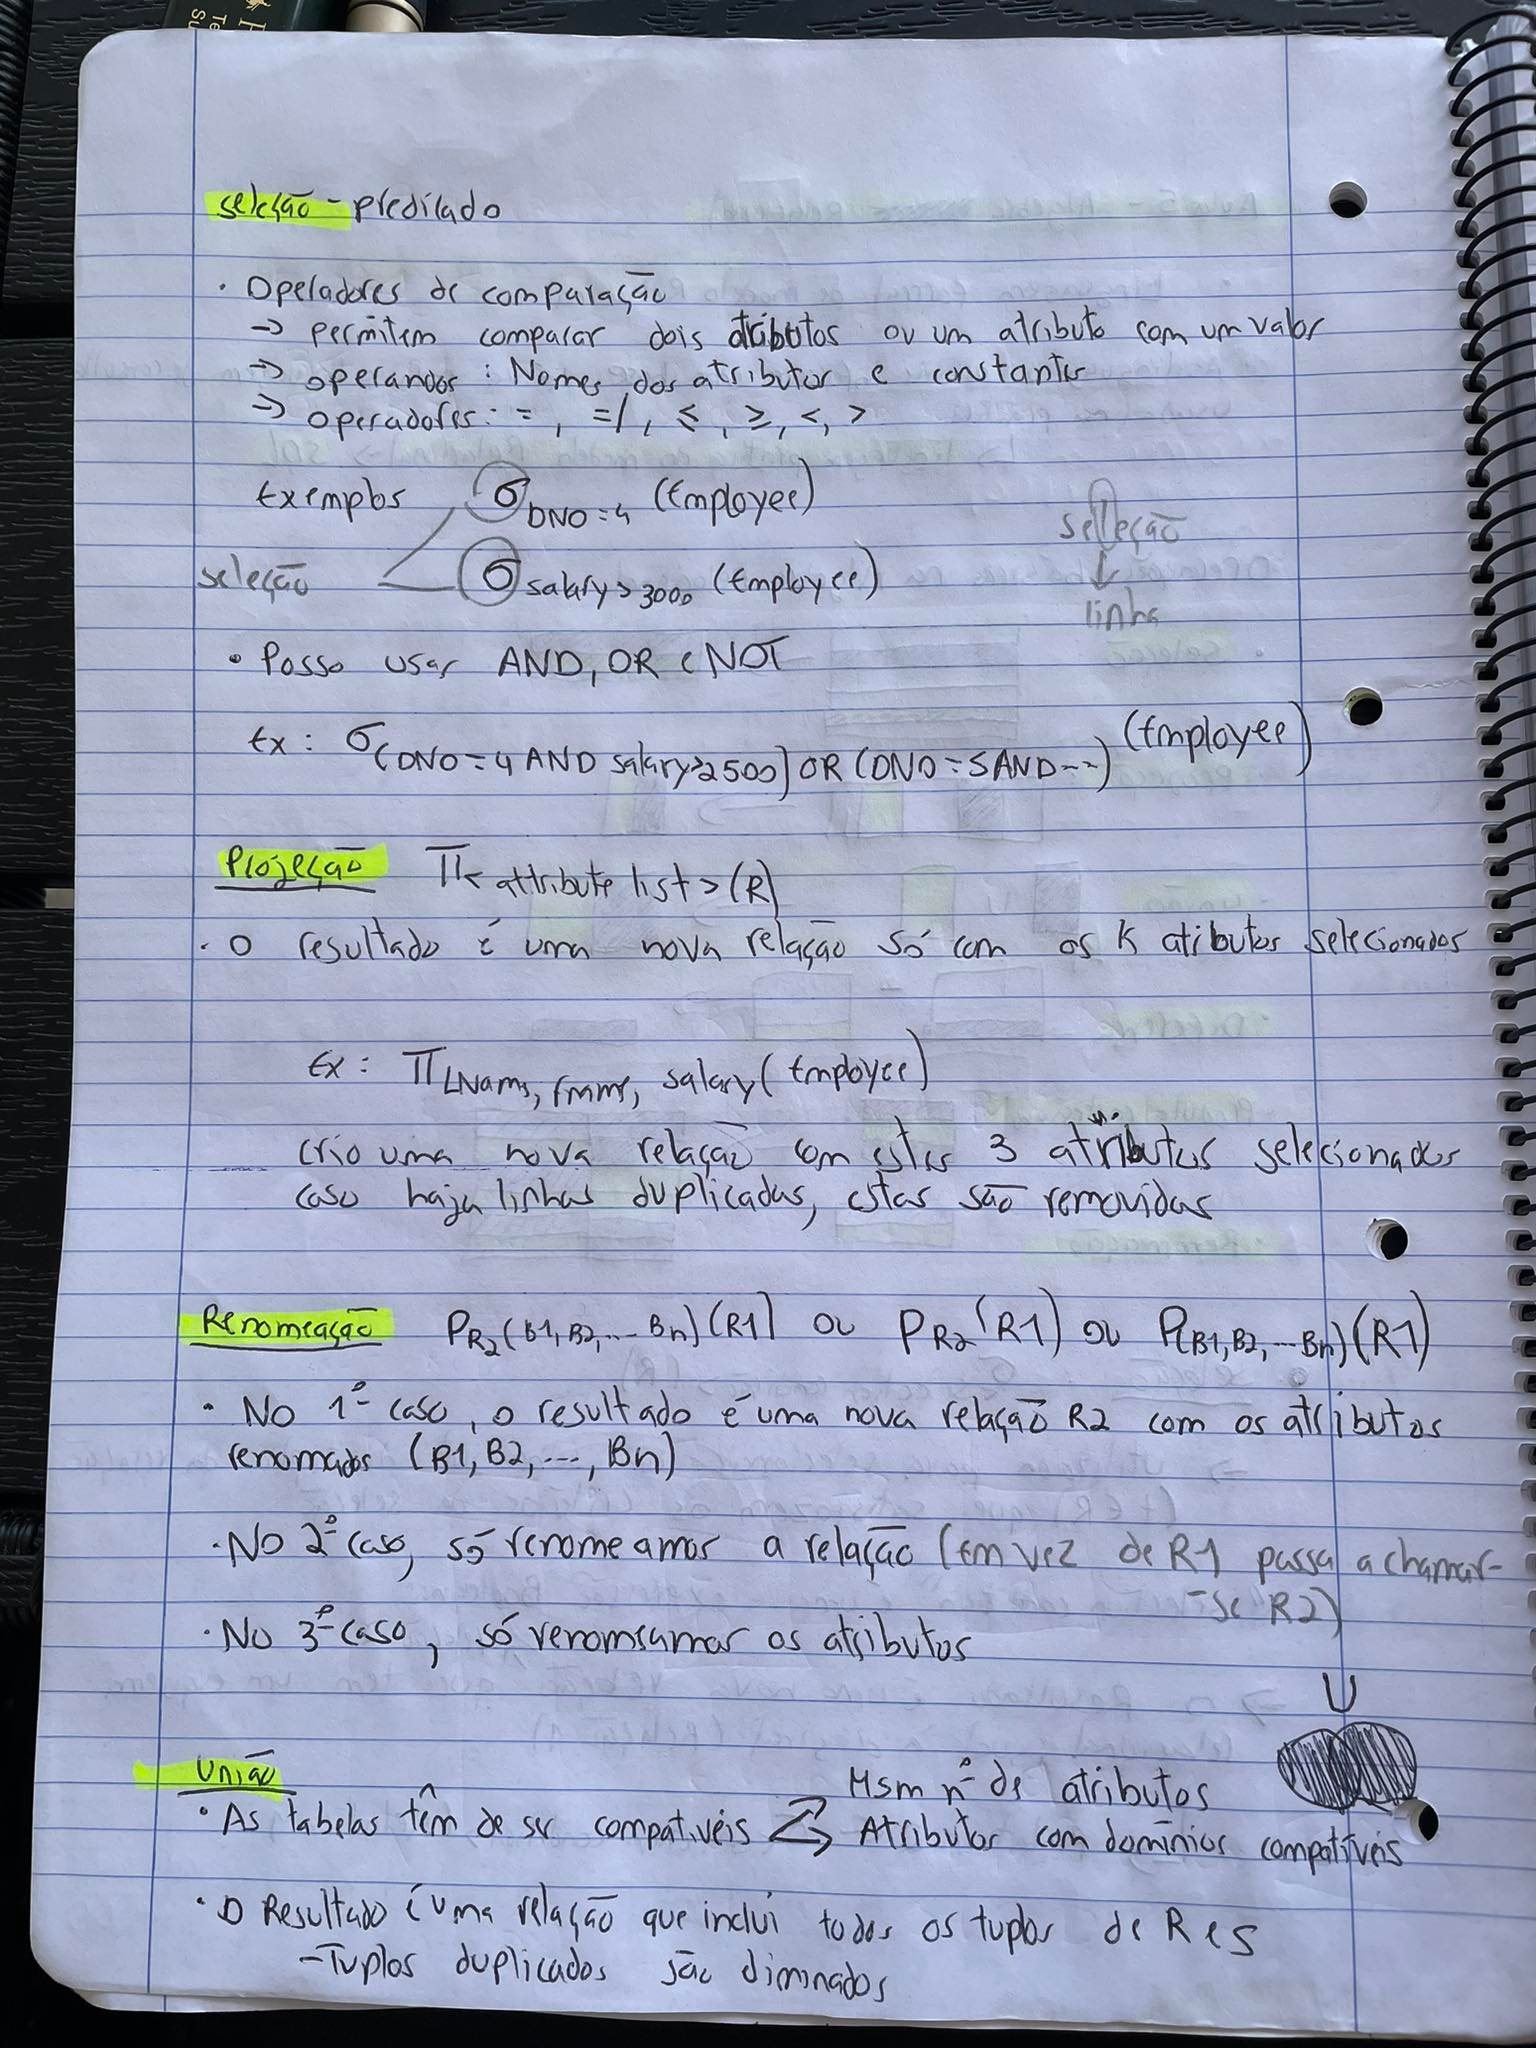 seleção - predicado
· Operadores de comparação
→ permitem comparar dois atributos ou um atributo com um valor
→ operandos : Nomes dos atributos e constantes
→ operadores : = , =/ , ≤ , ≥, <, >
Exemplos σ DNO = 4 (Employee)
seleção
↓
linha
seleção σ salary > 3000 (Employee)
• Posso usar AND, OR e NOT
Ex : σ (DNO = 4 AND salary>2500) OR (DNO = 5 AND --) (Employee)
Projeção π < attribute list > (R)
· O resultado é uma nova relação só com os k atibutos selecionados
Ex : π LName, fname, salary (Employee)
crio uma nova relação com estes 3 atributos selecionados
caso haja linhas duplicadas, estas são removidas
Renomeação ρ R2 (B1, B2, ... Bn) (R1) ou ρ R2 (R1) ou ρ(B1, B2, ... Bn) (R1)
· No 1º caso, o resultado é uma nova relação R2 com os atributos
renomados (B1, B2, ..., Bn)
· No 2º caso, só renomeamos a relação (Em vez de R1 passa a chamar-
-se R2)
· No 3º caso, só renomeamos os atributos
U
União
• As tabelas têm de ser compativéis
Msm nº de atributos
Atributos com domínios compatívéis
· O Resultado é uma relação que inclui todos os tuplos de R e S
- Tuplos duplicados são eliminados